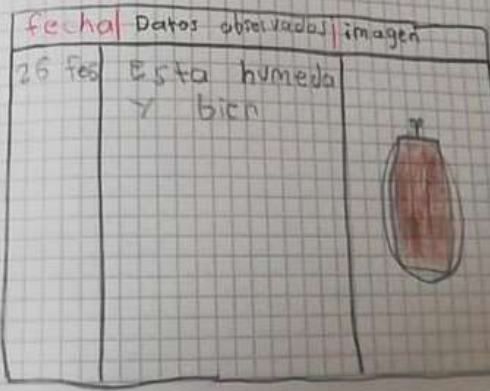 fecha Datos observados imagen
26 feb Esta humeda
y bien